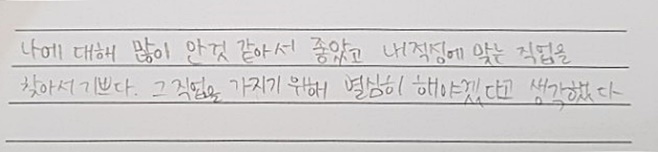 나에 대해 많이 안것 같아서 좋았고 내적성에 맞는 직업을
찾아서 기쁘다. 그 직업을 가지기 위해 열심히 해야겠다고 생각했다